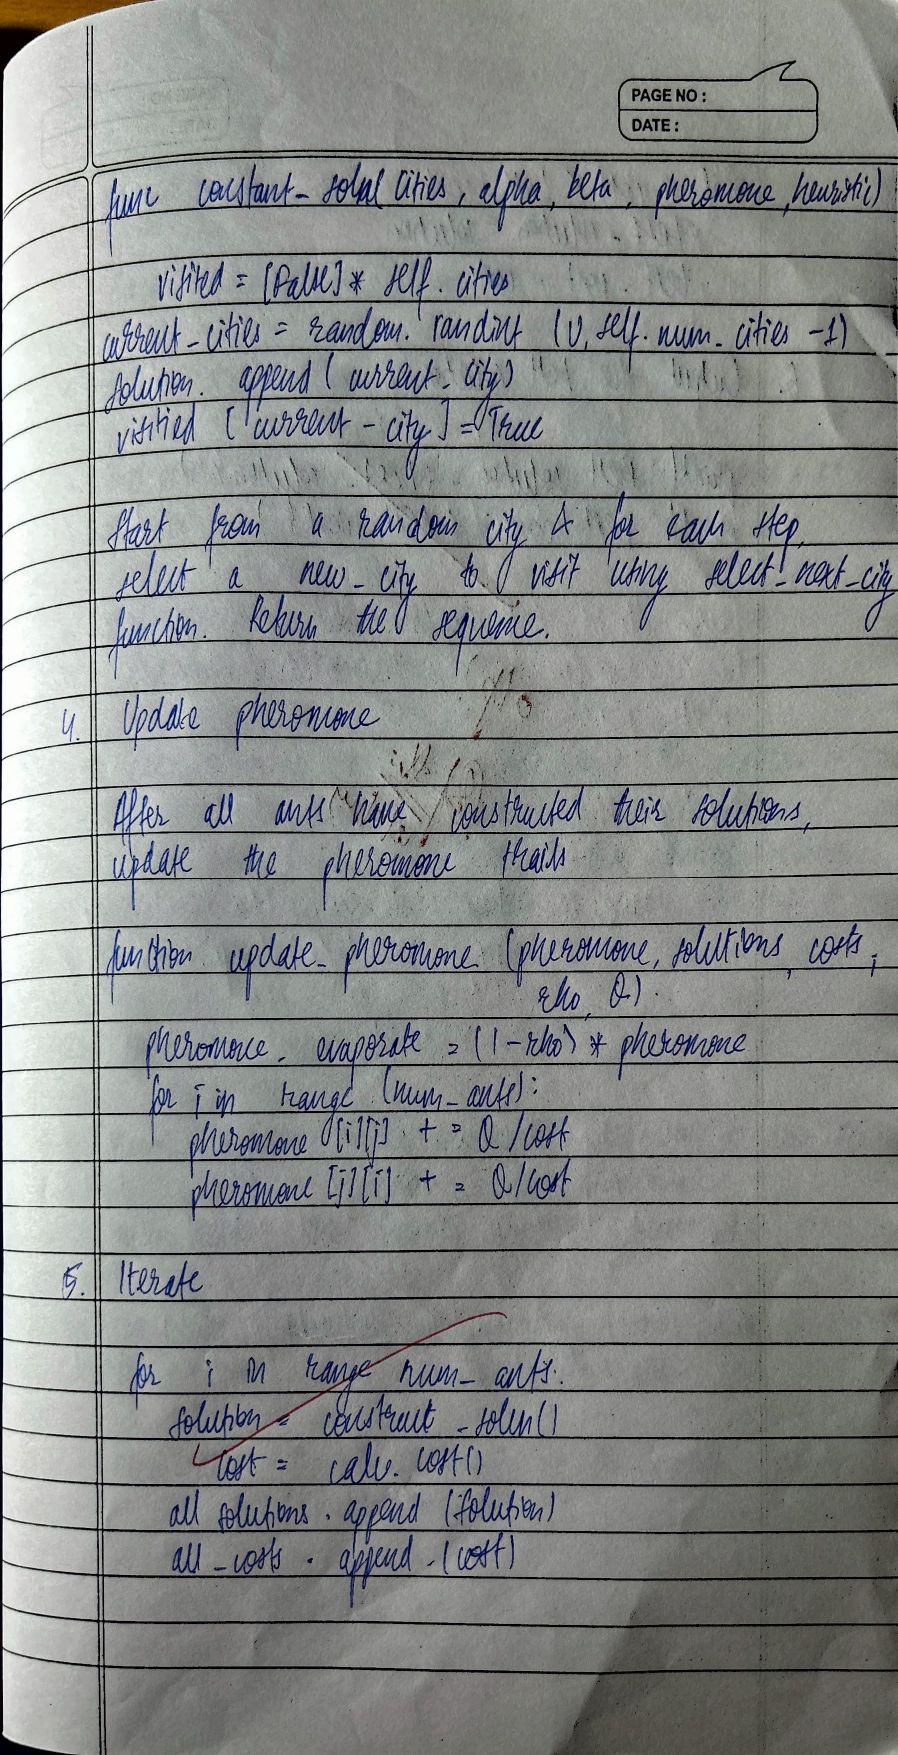 PAGE NO :
DATE :
func constant_soln( cities, alpha, beta, pheromone, heuristic)
visited = [False] * self. cities
current_cities = random. randint (0, self. num_ cities -1)
Solution. append ( current_city)
visitied [ current - city ] = True
Start from a random city & for each step,
select a new_city to visit using select_next_city
function. Return the sequence.
4. Update pheromone
After all ants have constructed their solutions,
update the pheromone trails
function update_ pheromone (pheromone, solutions, costs,
rho, Q).
pheromone_ evaporate = (1-rho) * pheromone
for i in range (num_ants):
pheromone [i][j] + = Q /cost
pheromone [j][i] + = Q/cost
5. Iterate
for i in range num_ ants:
solution = construct _soln()
cost = calc. cost()
all solutions . append (solution)
all _costs . append . (cost)